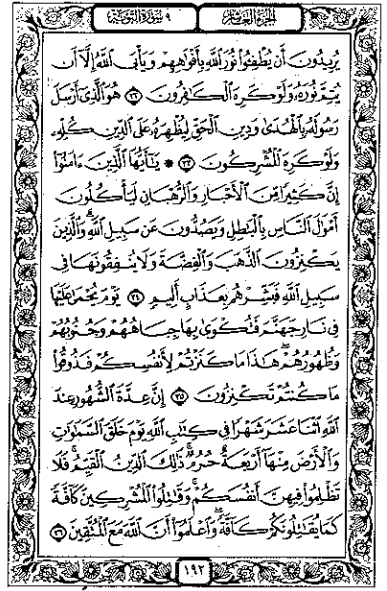 الجزء العاشر
٩ سورة التوبة
يُرِيدُونَ أَن يُطْفِـُٔوا۟ نُورَ ٱللَّهِ بِأَفْوَٰهِهِمْ وَيَأْبَى ٱللَّهُ إِلَّآ أَن
يُتِمَّ نُورَهُۥ وَلَوْ كَرِهَ ٱلْكَٰفِرُونَ ٣٢ هُوَ ٱلَّذِىٓ أَرْسَلَ
رَسُولَهُۥ بِٱلْهُدَىٰ وَدِينِ ٱلْحَقِّ لِيُظْهِرَهُۥ عَلَى ٱلدِّينِ كُلِّهِۦ
وَلَوْ كَرِهَ ٱلْمُشْرِكُونَ ٣٣ ۞ يَٰٓأَيُّهَا ٱلَّذِينَ ءَامَنُوٓا۟
إِنَّ كَثِيرًا مِّنَ ٱلْأَحْبَارِ وَٱلرُّهْبَانِ لَيَأْكُلُونَ
أَمْوَٰلَ ٱلنَّاسِ بِٱلْبَٰطِلِ وَيَصُدُّونَ عَن سَبِيلِ ٱللَّهِ ۗ وَٱلَّذِينَ
يَكْنِزُونَ ٱلذَّهَبَ وَٱلْفِضَّةَ وَلَا يُنفِقُونَهَا فِى
سَبِيلِ ٱللَّهِ فَبَشِّرْهُم بِعَذَابٍ أَلِيمٍ ٣٤ يَوْمَ يُحْمَىٰ عَلَيْهَا
فِى نَارِ جَهَنَّمَ فَتُكْوَىٰ بِهَا جِبَاهُهُمْ وَجُنُوبُهُمْ
وَظُهُورُهُمْ ۖ هَٰذَا مَا كَنَزْتُمْ لِأَنفُسِكُمْ فَذُوقُوا۟
مَا كُنتُمْ تَكْنِزُونَ ٣٥ إِنَّ عِدَّةَ ٱلشُّهُورِ عِندَ
ٱللَّهِ ٱثْنَا عَشَرَ شَهْرًا فِى كِتَٰبِ ٱللَّهِ يَوْمَ خَلَقَ ٱلسَّمَٰوَٰتِ
وَٱلْأَرْضَ مِنْهَآ أَرْبَعَةٌ حُرُمٌ ۚ ذَٰلِكَ ٱلدِّينُ ٱلْقَيِّمُ ۚ فَلَا
تَظْلِمُوا۟ فِيهِنَّ أَنفُسَكُمْ ۚ وَقَٰتِلُوا۟ ٱلْمُشْرِكِينَ كَآفَّةً
كَمَا يُقَٰتِلُونَكُمْ كَآفَّةً ۚ وَٱعْلَمُوٓا۟ أَنَّ ٱللَّهَ مَعَ ٱلْمُتَّقِينَ ٣٦
١٩٢